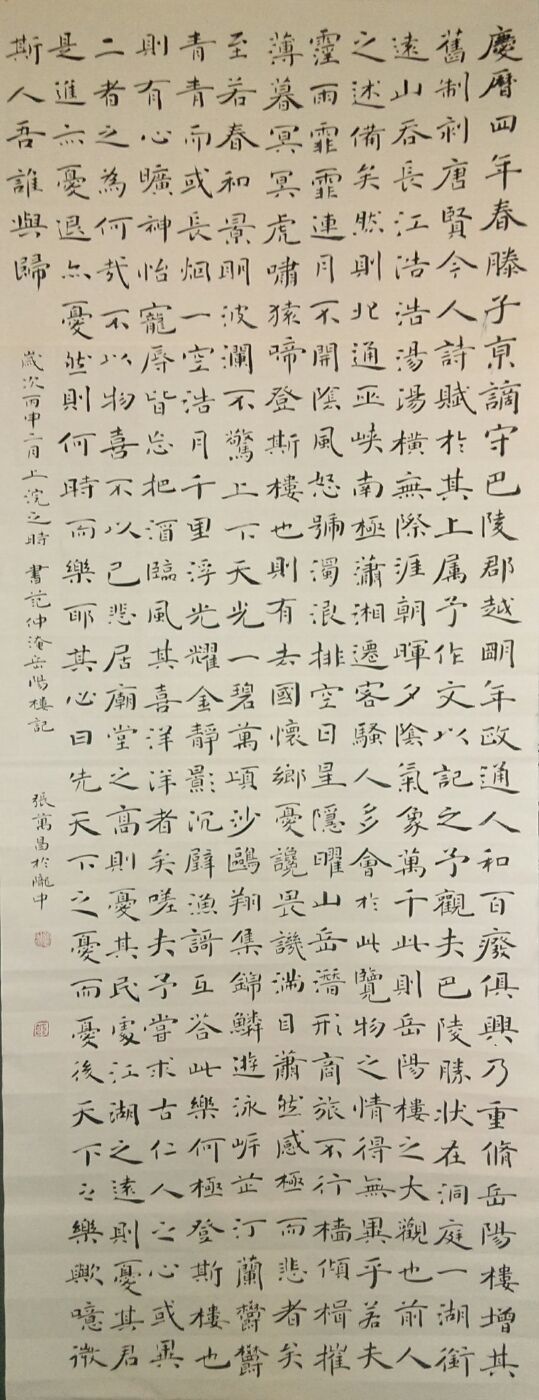 慶曆四年春滕子京謫守巴陵郡越明年政通人和百廢俱興乃重脩岳陽樓增其
舊制刻唐賢今人詩賦於其上属予作文以記之予觀夫巴陵勝狀在洞庭一湖銜
遠山吞長江浩浩湯湯橫無際涯朝暉夕陰氣象萬千此則岳陽樓之大觀也前人
之述備矣然則北通巫峽南極瀟湘遷客騷人多會於此覽物之情得無異乎若夫
霪雨霏霏連月不開陰風怒號濁浪排空日星隱曜山岳潛形商旅不行檣傾楫摧
薄暮冥冥虎嘯猿啼登斯樓也則有去國懷鄉憂讒畏譏滿目蕭然感極而悲者矣
至若春和景明波瀾不驚上下天光一碧萬頃沙鷗翔集錦鱗遊泳岸芷汀蘭鬱鬱
青青而或長烟一空浩月千里浮光耀金靜影沉璧漁謌互答此樂何極登斯樓也
則有心曠神怡寵辱皆忘把酒臨風其喜洋洋者矣嗟夫予嘗求古仁人之心或異
二者之為何哉不以物喜不以己悲居廟堂之高則憂其民處江湖之遠則憂其君
是進亦憂退亦憂然則何時而樂耶其心曰先天下之憂而憂後天下之樂歟噫微
斯人吾誰與歸
歲次丙申二月上浣之時 書范仲淹岳陽樓記 張萬昌於隴中